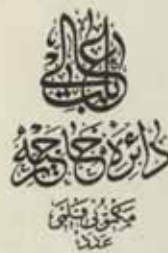 باب عالی
دائرهٔ خارجیه
مکتوبی قلمی
عدد